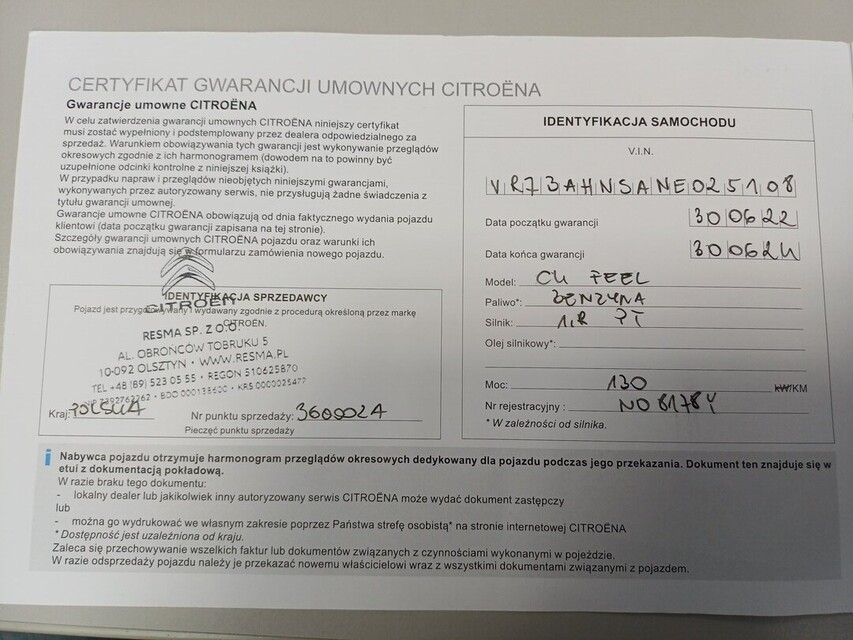 CERTYFIKAT GWARANCJI UMOWNYCH CITROËNA
Gwarancje umowne CITROËNA
W celu zatwierdzenia gwarancji umownych CITROËNA niniejszy certyfikat
musi zostać wypełniony i podstemplowany przez dealera odpowiedzialnego za
sprzedaż. Warunkiem obowiązywania tych gwarancji jest wykonywanie przeglądów
okresowych zgodnie z ich harmonogramem (dowodem na to powinny być
uzupełnione odcinki kontrolne z niniejszej książki).
W przypadku napraw i przeglądów nieobjętych niniejszymi gwarancjami,
wykonywanych przez autoryzowany serwis, nie przysługują żadne świadczenia z
tytułu gwarancji umownej.
Gwarancje umowne CITROËNA obowiązują od dnia faktycznego wydania pojazdu
klientowi (data początku gwarancji zapisana na tej stronie).
Szczegóły gwarancji umownych CITROËNA pojazdu oraz warunki ich
obowiązywania znajdują się w formularzu zamówienia nowego pojazdu.
IDENTYFIKACJA SPRZEDAWCY
CITROËN
Pojazd jest przygotowywany i wydawany zgodnie z procedurą określoną przez markę
CITROËN.
RESMA SP. Z O.O.
AL. OBROŃCÓW TOBRUKU 5
10-092 OLSZTYN • WWW.RESMA.PL
TEL +48 (89) 523 05 55 • REGON 510625870
BDO 000138600 • KRS 0000025477
Kraj: POLSKA Nr punktu sprzedaży: 360002A
Pieczęć punktu sprzedaży
IDENTYFIKACJA SAMOCHODU
V.I.N.
VR73AHNSANE025108
Data początku gwarancji 300622
Data końca gwarancji 300624
Model: C4 FEEL
Paliwo*: BENZYNA
Silnik: 1,2 PT
Olej silnikowy*:
Moc: 130 kW/KM
Nr rejestracyjny : NO 8178Y
* W zależności od silnika.
i Nabywca pojazdu otrzymuje harmonogram przeglądów okresowych dedykowany dla pojazdu podczas jego przekazania. Dokument ten znajduje się w
etui z dokumentacją pokładową.
W razie braku tego dokumentu:
- lokalny dealer lub jakikolwiek inny autoryzowany serwis CITROËNA może wydać dokument zastępczy
lub
- można go wydrukować we własnym zakresie poprzez Państwa strefę osobistą* na stronie internetowej CITROËNA
* Dostępność jest uzależniona od kraju.
Zaleca się przechowywanie wszelkich faktur lub dokumentów związanych z czynnościami wykonanymi w pojeździe.
W razie odsprzedaży pojazdu należy je przekazać nowemu właścicielowi wraz z wszystkimi dokumentami związanymi z pojazdem.